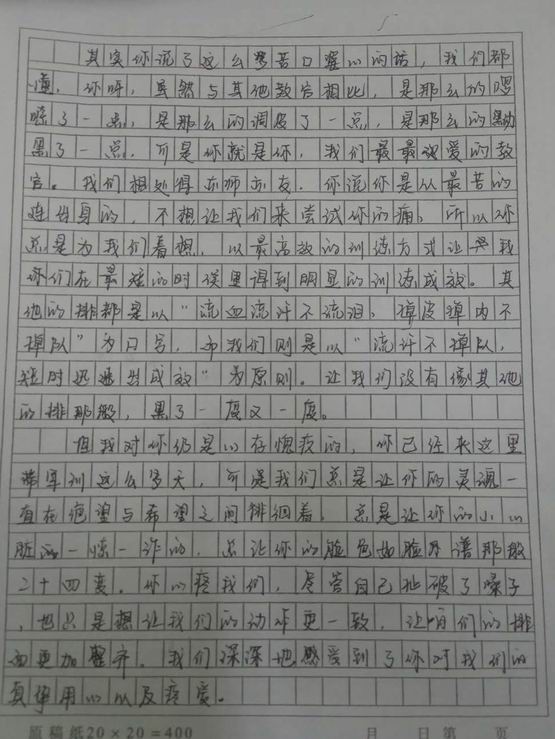 其实你说了这么多苦口婆心的话，我们都
懂。你呀，虽然与其他教官相比，是那么的啰
嗦了一点，是那么的调皮了一点，是那么的黝
黑了一点，可是你就是你，我们最最敬爱的教
官。我们相处得亦师亦友。你说你是从最苦的
连出身的，不想让我们来尝试你的痛。所以你
总是为我们着想，以最高效的训练方式让我
们在最短的时候里得到明显的训练成效。其
他的排都是以“流血流汗不流泪，掉皮掉肉不
掉队”为口号，而我们则是以“流汗不掉队，
短时迅速出成效”为原则。让我们没有像其他
的排那般，黑了一度又一度。
但我对你仍是心存愧疚的，你已经来这里
带军训这么多天，可是我们总是让你的灵魂一
直在绝望与希望之间排徊着。总是让你的小心
脏的一惊一诈的，总让你的脸色如脸谱那般
二十四变。你心疼我们，尽管自己扯破了嗓子
，也只是想让我们的动作更一致，让咱们的排
面更加整齐。我们深深地感受到了你对我们的
真使用心以及疼爱。
原稿纸20×20=400 月 日第 页